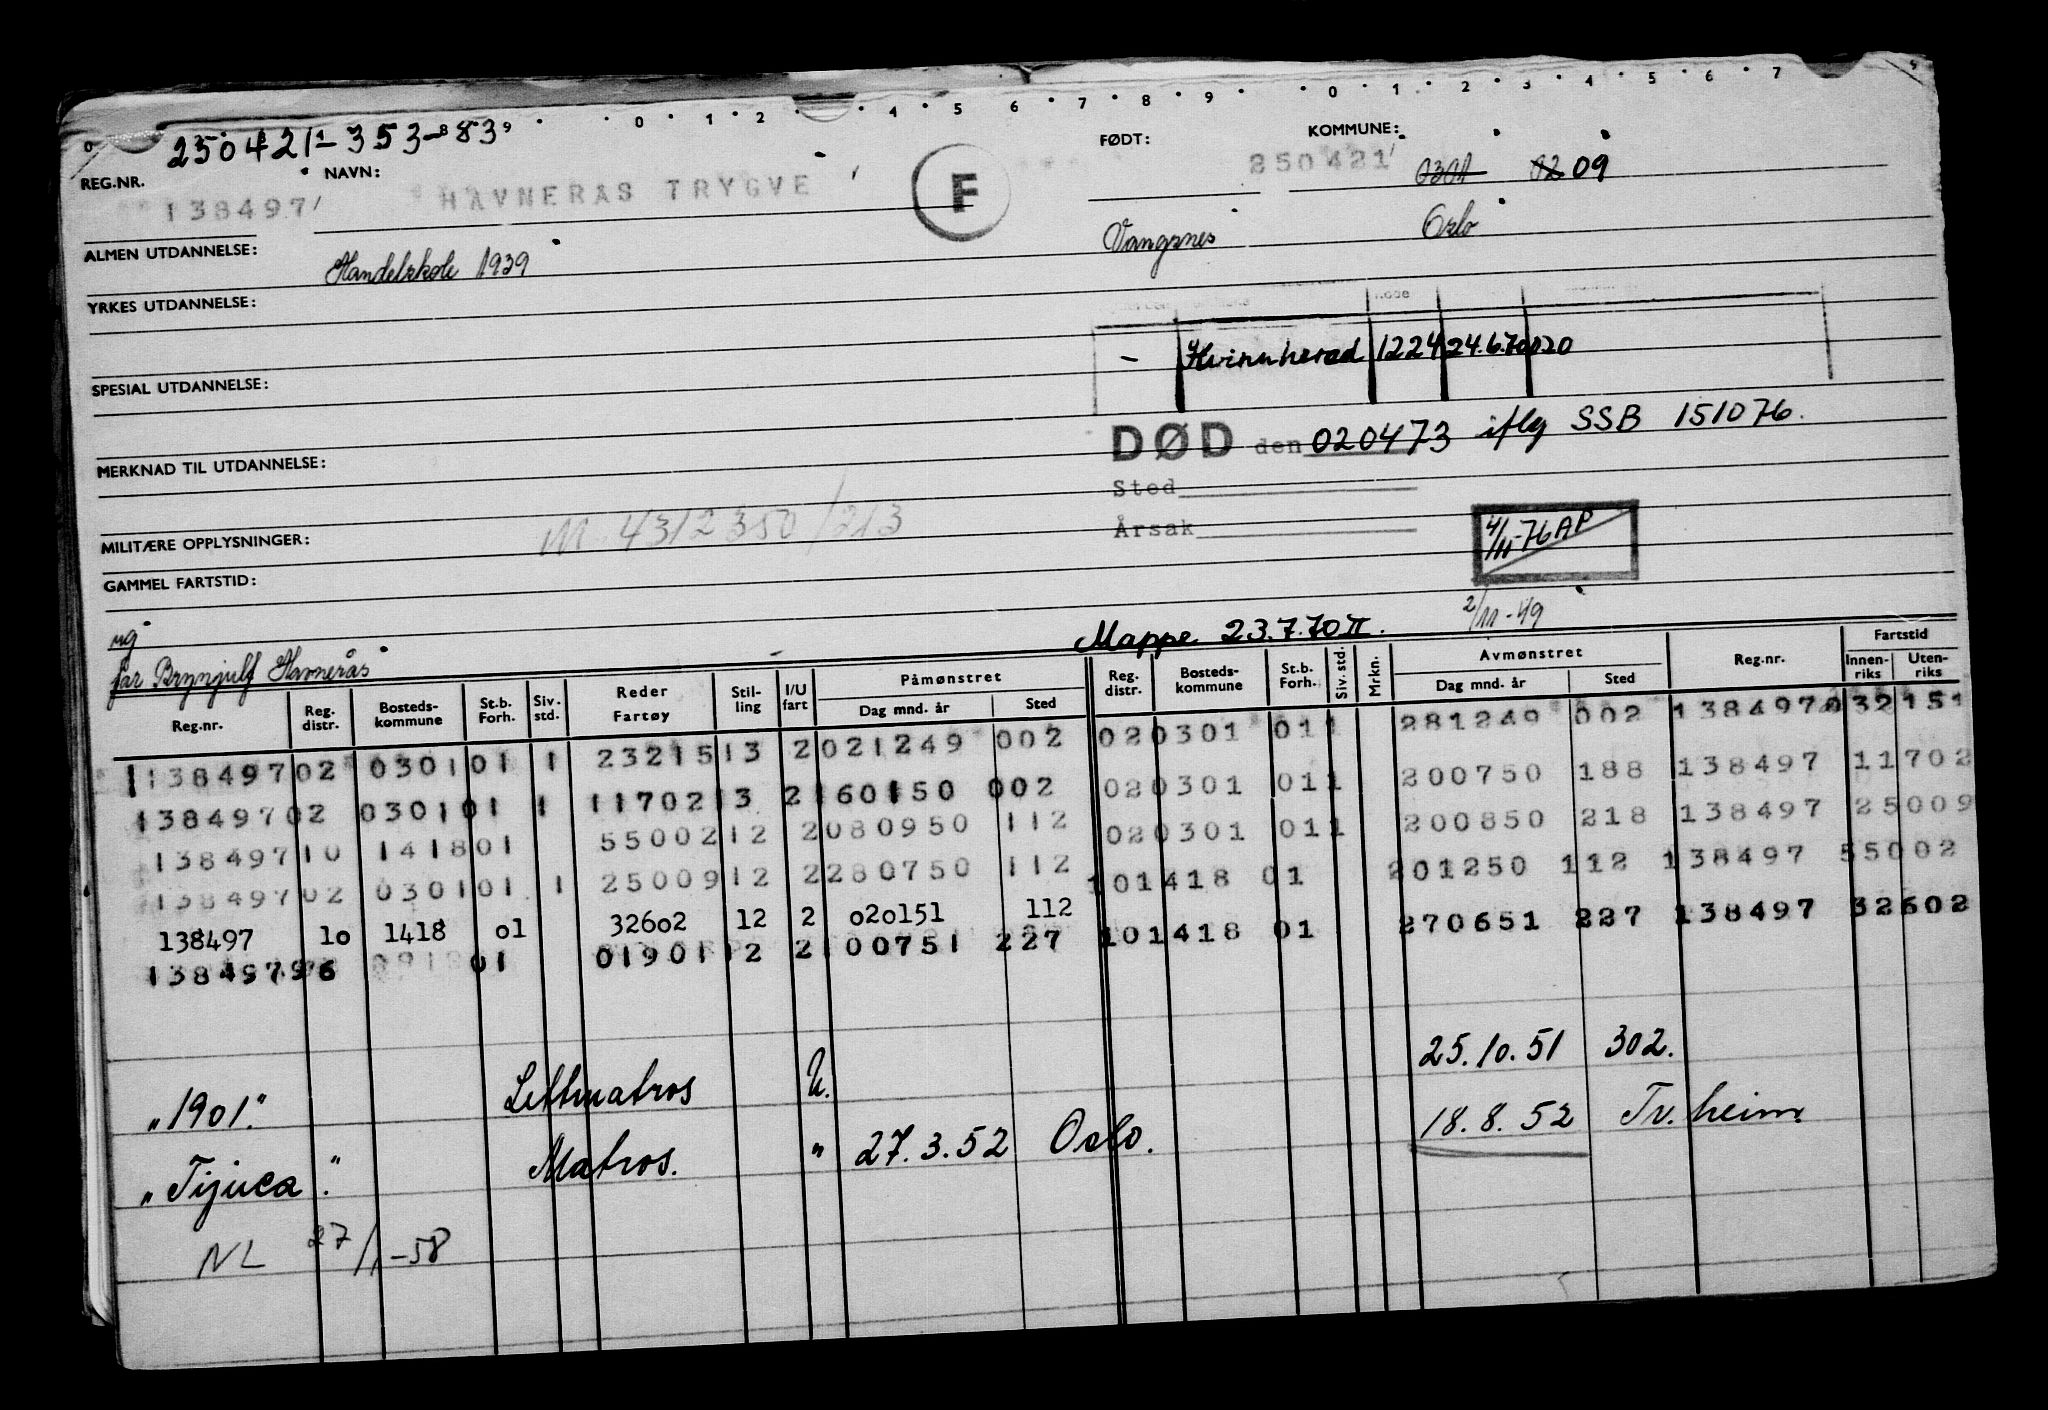 0 1 2 4 5 6 7 8 9 0 1 2 3 4 5 6 7
250421-353-83
REG.NR. NAVN: FØDT: KOMMUNE:
138497 HAVNERAS TRYGVE F 250421 0301 02 09
ALMEN UTDANNELSE: Handelskole 1939 Vangsnes Oslo
YRKES UTDANNELSE:
- Kvinnherad 1224 24.6.70 020
SPESIAL UTDANNELSE:
DØD den 020473 iflg SSB 151076.
MERKNAD TIL UTDANNELSE:
Sted
MILITÆRE OPPLYSNINGER: M. 4312350/213
Årsak 4/11-76 AP
GAMMEL FARTSTID:
2/11-49
ug
Mappe 23.7.70 II.
far Brynjulf Havnerås
Reg.nr. Reg. distr. Bosteds- kommune St.b. Forh. Siv. std. Reder Fartøy Stil- ling I/U fart Påmønstret Dag mnd. år Sted Reg. distr. Bosteds- kommune St.b. Forh. Siv. std. Mrkn. Avmønstret Dag mnd. år Sted Reg.nr. Fartstid Innen- riks Uten- riks
138497 02 0301 01 1 23215 13 2 021249 002 02 0301 01 1 281249 002 138497 0 32151
138497 02 0301 01 1 11702 13 2 160150 002 02 0301 01 1 200750 188 138497 11702
138497 10 1418 01 55002 12 2 080950 112 02 0301 01 1 200850 218 138497 25009
138497 02 0301 01 1 25009 12 2 280750 112 10 1418 01 201250 112 138497 55002
138497 10 1418 01 32602 12 2 020151 112 10 1418 01 270651 227 138497 32602
138497 96 01 01901 12 2 100751 227
"1901." Lettmatros U. 25.10.51 302.
"Tijuca". Matros. " 27.3.52 Oslo. 18.8.52 Tr.heim
NL 27/1-58